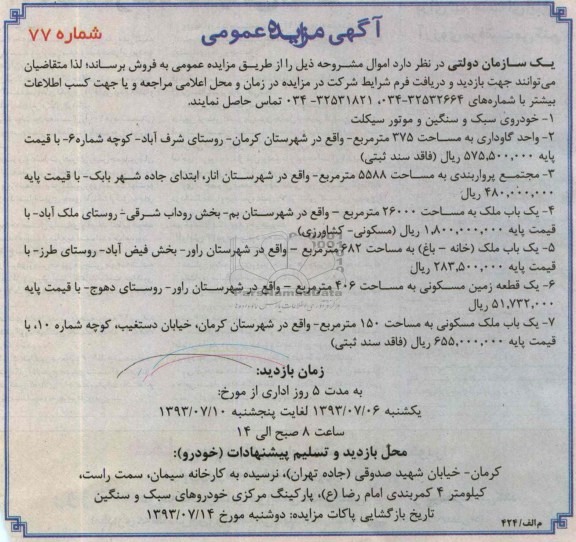 آگهی مزایده عمومی
شماره ۷۷
یک سازمان دولتی در نظر دارد اموال مشروحه ذیل را از طریق مزایده عمومی به فروش برساند؛ لذا متقاضیان
می‌توانند جهت بازدید و دریافت فرم شرایط شرکت در مزایده در زمان و محل اعلامی مراجعه و یا جهت کسب اطلاعات
بیشتر با شماره‌های ۳۲۵۳۲۶۶۴-۰۳۴، ۳۲۵۳۱۸۲۱-۰۳۴ تماس حاصل نمایند.
۱- خودروی سبک و سنگین و موتور سیکلت
۲- واحد گاوداری به مساحت ۳۷۵ مترمربع- واقع در شهرستان کرمان- روستای شرف آباد- کوچه شماره۶- با قیمت
پایه ۵۷۵,۵۰۰,۰۰۰ ریال (فاقد سند ثبتی)
۳- مجتمع پرواربندی به مساحت ۵۵۸۸ مترمربع- واقع در شهرستان انار، ابتدای جاده شهر بابک- با قیمت پایه
۴۸۰,۰۰۰,۰۰۰ ریال
۴- یک باب ملک به مساحت ۲۶۰۰۰ مترمربع – واقع در شهرستان بم- بخش روداب شرقی- روستای ملک آباد- با
قیمت پایه ۱,۸۰۰,۰۰۰,۰۰۰ ریال (مسکونی- کشاورزی)
۵- یک باب ملک (خانه – باغ) به مساحت ۶۸۲ مترمربع – واقع در شهرستان راور- بخش فیض آباد- روستای طرز- با
قیمت پایه ۲۸۳,۵۰۰,۰۰۰ ریال
۶- یک قطعه زمین مسکونی به مساحت ۴۰۶ مترمربع – واقع در شهرستان راور- روستای دهوج- با قیمت پایه
۵۱,۷۳۲,۰۰۰ ریال
۷- یک باب ملک مسکونی به مساحت ۱۵۰ مترمربع- واقع در شهرستان کرمان، خیابان دستغیب، کوچه شماره ۱۰، با
قیمت پایه ۶۵۵,۰۰۰,۰۰۰ ریال (فاقد سند ثبتی)
زمان بازدید:
به مدت ۵ روز اداری از مورخ:
یکشنبه ۱۳۹۳/۰۷/۰۶ لغایت پنجشنبه ۱۳۹۳/۰۷/۱۰
ساعت ۸ صبح الی ۱۴
محل بازدید و تسلیم پیشنهادات (خودرو):
کرمان- خیابان شهید صدوقی (جاده تهران)، نرسیده به کارخانه سیمان، سمت راست،
کیلومتر ۴ کمربندی امام رضا (ع)، پارکینگ مرکزی خودروهای سبک و سنگین
تاریخ بازگشایی پاکات مزایده: دوشنبه مورخ ۱۳۹۳/۰۷/۱۴
م‌الف/۴۲۴